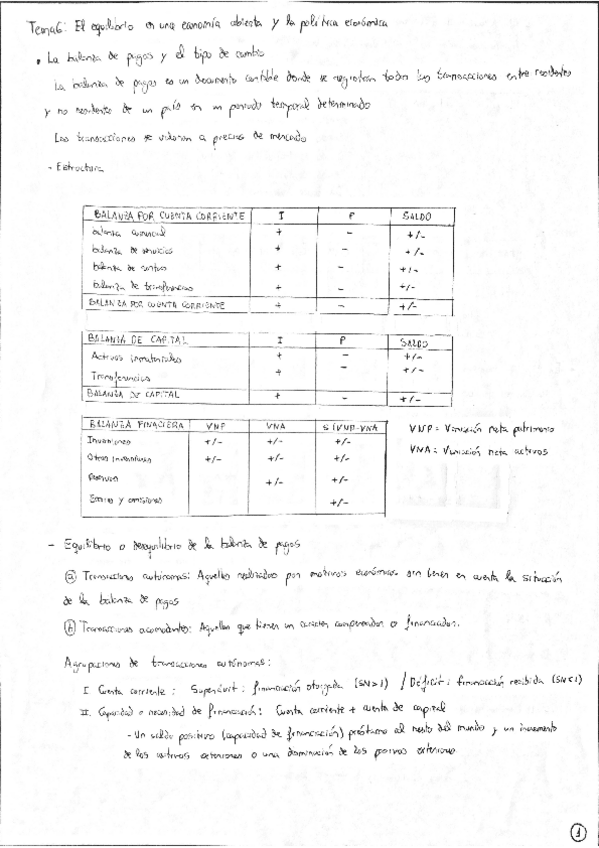 Tema 6: El equilibrio en una economía abierta y la política económica
• La balanza de pagos y el tipo de cambio
La balanza de pagos es un documento contable donde se registran todas las transacciones entre residentes
y no residentes de un país en un periodo temporal determinado
Las transacciones se valoran a precios de mercado
- Estructura
BALANZA POR CUENTA CORRIENTE I P SALDO
balanza comercial + - +/-
balanza de servicios + - +/-
balanza de rentas + - +/-
balanza de transferencias + - +/-
BALANZA POR CUENTA CORRIENTE + - +/-
BALANZA DE CAPITAL I P SALDO
Activos inmateriales + - +/-
Transferencias + - +/-
BALANZA DE CAPITAL + - +/-
BALANZA FINACIERA VNP VNA S(VNP-VNA
Inversiones +/- +/- +/-
Otras inversiones +/- +/- +/-
Reservas +/- +/-
Errores y omisiones +/-
VNP = Variación neta patrimonio
VNA = Variación neta activos
- Equilibrio o desequilibrio de la balanza de pagos
ⓐ Transacciones autónomas: Aquellas realizadas por motivos económicos sin tener en cuenta la situación
de la balanza de pagos
ⓑ Transacciones acomodantes: Aquellas que tienen un carácter compensador o financiador.
Agrupaciones de transacciones autónomas:
I Cuenta corriente: Superávit: financiación otorgada (SN>1) / Déficit: financiación recibida (SN<1)
II. Capacidad o necesidad de financiación: Cuenta corriente + cuenta de capital
- Un saldo positivo (capacidad de financiación) préstamo al resto del mundo y un incremento
de los activos exteriores o una disminución de los pasivos exteriores.
1